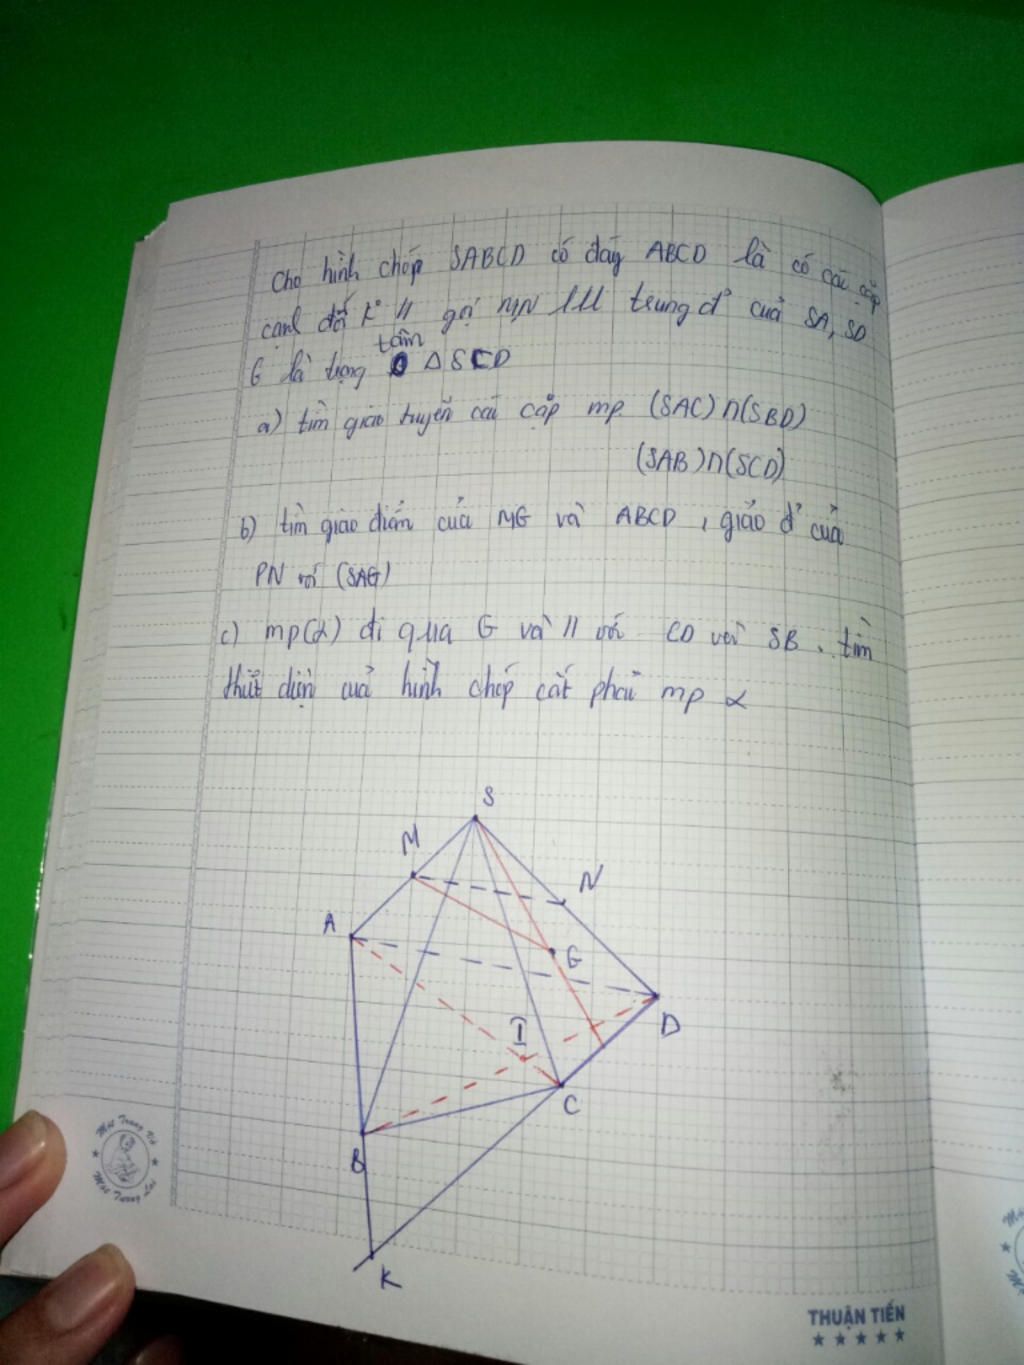 Cho hình chóp SABCD có đáy ABCD là có các cặp
cạnh đối k° // gọi M,N lll trung đ' của SA, SD
G là trọng tâm Δ SCD
a) tìm giao tuyến các cặp mp (SAC)∩(SBD)
(SAB)∩(SCD)
b) tìm giao điểm của MG và ABCD , giao đ' của
PN với (SAG)
c) mp(α) đi qua G và // với CD và SB . tìm
thiết diện của hình chóp cắt phải mp α
S
M
N
A
G
I
D
C
B
K
Một Trang Vở
Một Tương Lai
THUẬN TIẾN